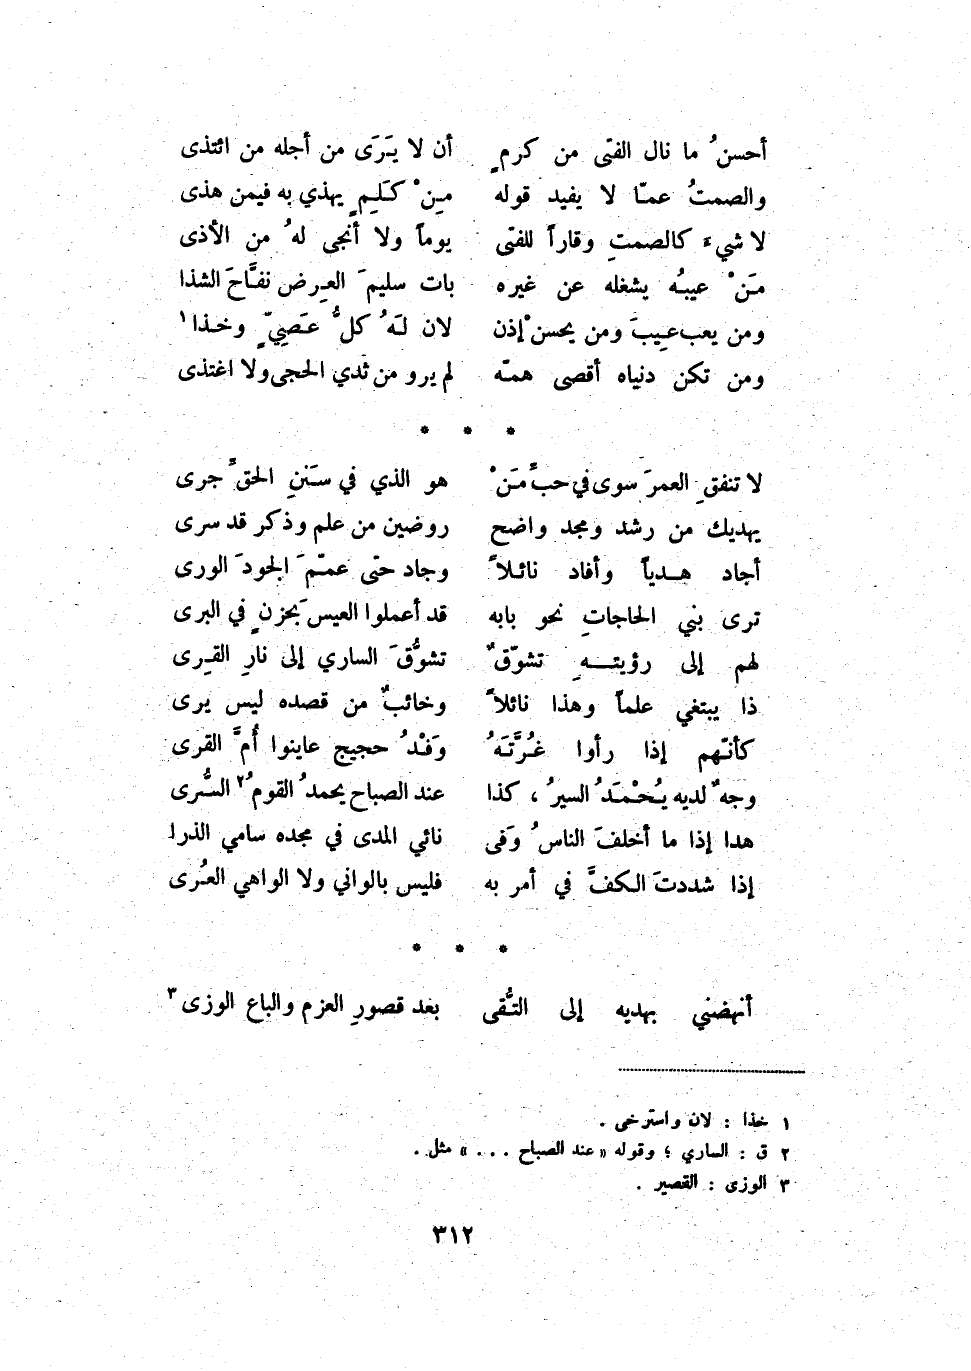 أحسنُ ما نال الفتى من كرمٍ أن لا يَرَى من أجله من ائتذى
والصمتُ عمّا لا يفيد قوله مِنْ كَلِمٍ يهذي به فيمن هذى
لا شيء كالصمتِ وقاراً للفتى يوماً ولا أنجى لهُ من الأذى
مَنْ عيبُه يشغله عن غيره بات سليمَ العِرض نفَّاحَ الشذا
ومن يعب عِيبَ ومن يحسنْ إذن لان لَهُ كلُّ عَصِيٍّ وخذا١
ومن تكن دنياه أقصى همّه لم يرو من ثدي الحجى ولا اغتذى
* * *
لا تنفقِ العمرَ سوى في حبِّ مَنْ هو الذي في سَننِ الحقِّ جرى
يهديك من رشد ومجد واضح روضين من علم وذكر قد سرى
أجاد هدياً وأفاد نائلاً وجاد حتى عمّمَ الجودَ الورى
ترى بني الحاجاتِ نحو بابه قد أعملوا العيسَ بحزنٍ في البرى
لهم إلى رؤيتهِ تشوّقٌ تشوُّقَ الساري إلى نارِ القِرى
ذا يبتغي علماً وهذا نائلاً وخائبٌ من قصده ليس يرى
كأنّهم إذا رأوا غُرَّتَهُ وَفْدُ حجيج عاينوا أُمَّ القرى
وجهٌ لديه يُحْمَدُ السيرُ ، كذا عند الصباح يحمدُ القومُ٢ السُّرى
هدا إذا ما أخلفَ الناسُ وَفى نائي المدى في مجده سامي الذرا
إذا شددتَ الكفَّ في أمر به فليس بالواني ولا الواهي العُرى
* * *
أنهضني بهديه إلى التُّقى بعد قصورِ العزم والباع الوزى٣
١ خذا : لان واسترخى .
٢ ق : الساري ؛ وقوله « عند الصباح . . . » مثل .
٣ الوزى : القصير .
٣١٢